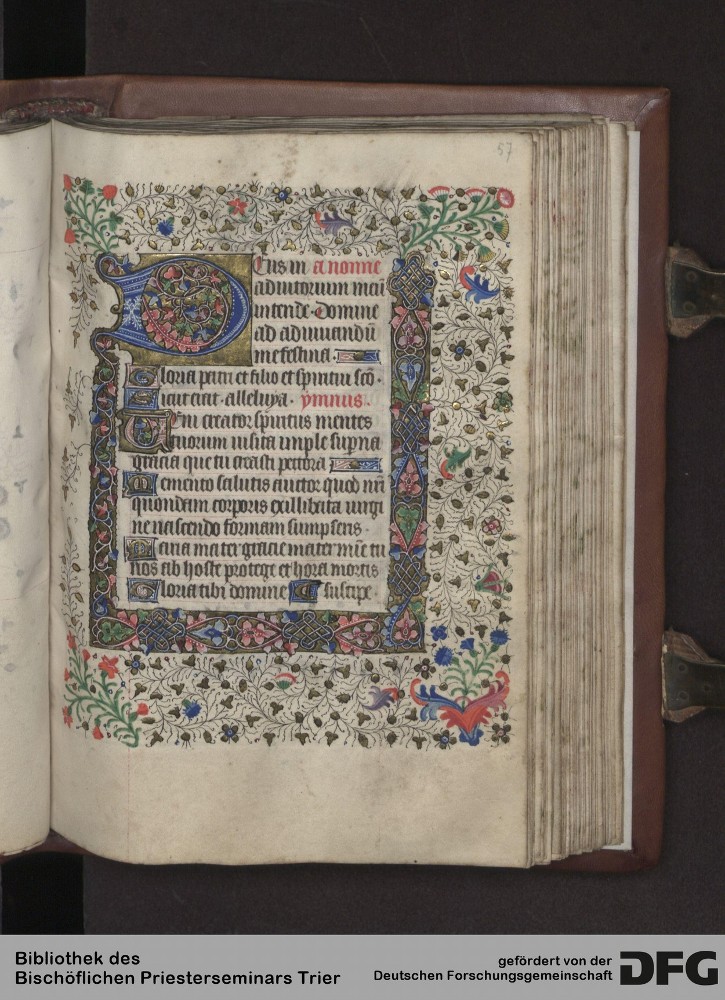 57
Deus in a nonne
adiutorium meũ
intende · Domine
ad adiuuandũ
me festina ·
Gloria patri et filio et spiritui scõ ·
Sicut erat · alleluya · ymnus ·
Veni creator spiritus mentes
tuorum uisita imple supna
gracia que tu creasti pectora
Memento salutis auctor quod nr̃i
quondam corporis ex illibata uirgi
ne nascendo formam sumpseris ·
Maria mater gracie mater mĩe tu
nos ab hoste protege et hora mortis
Gloria tibi domine Et suscipe ·
Bibliothek des
Bischöflichen Priesterseminars Trier
gefördert von der
Deutschen Forschungsgemeinschaft
DFG